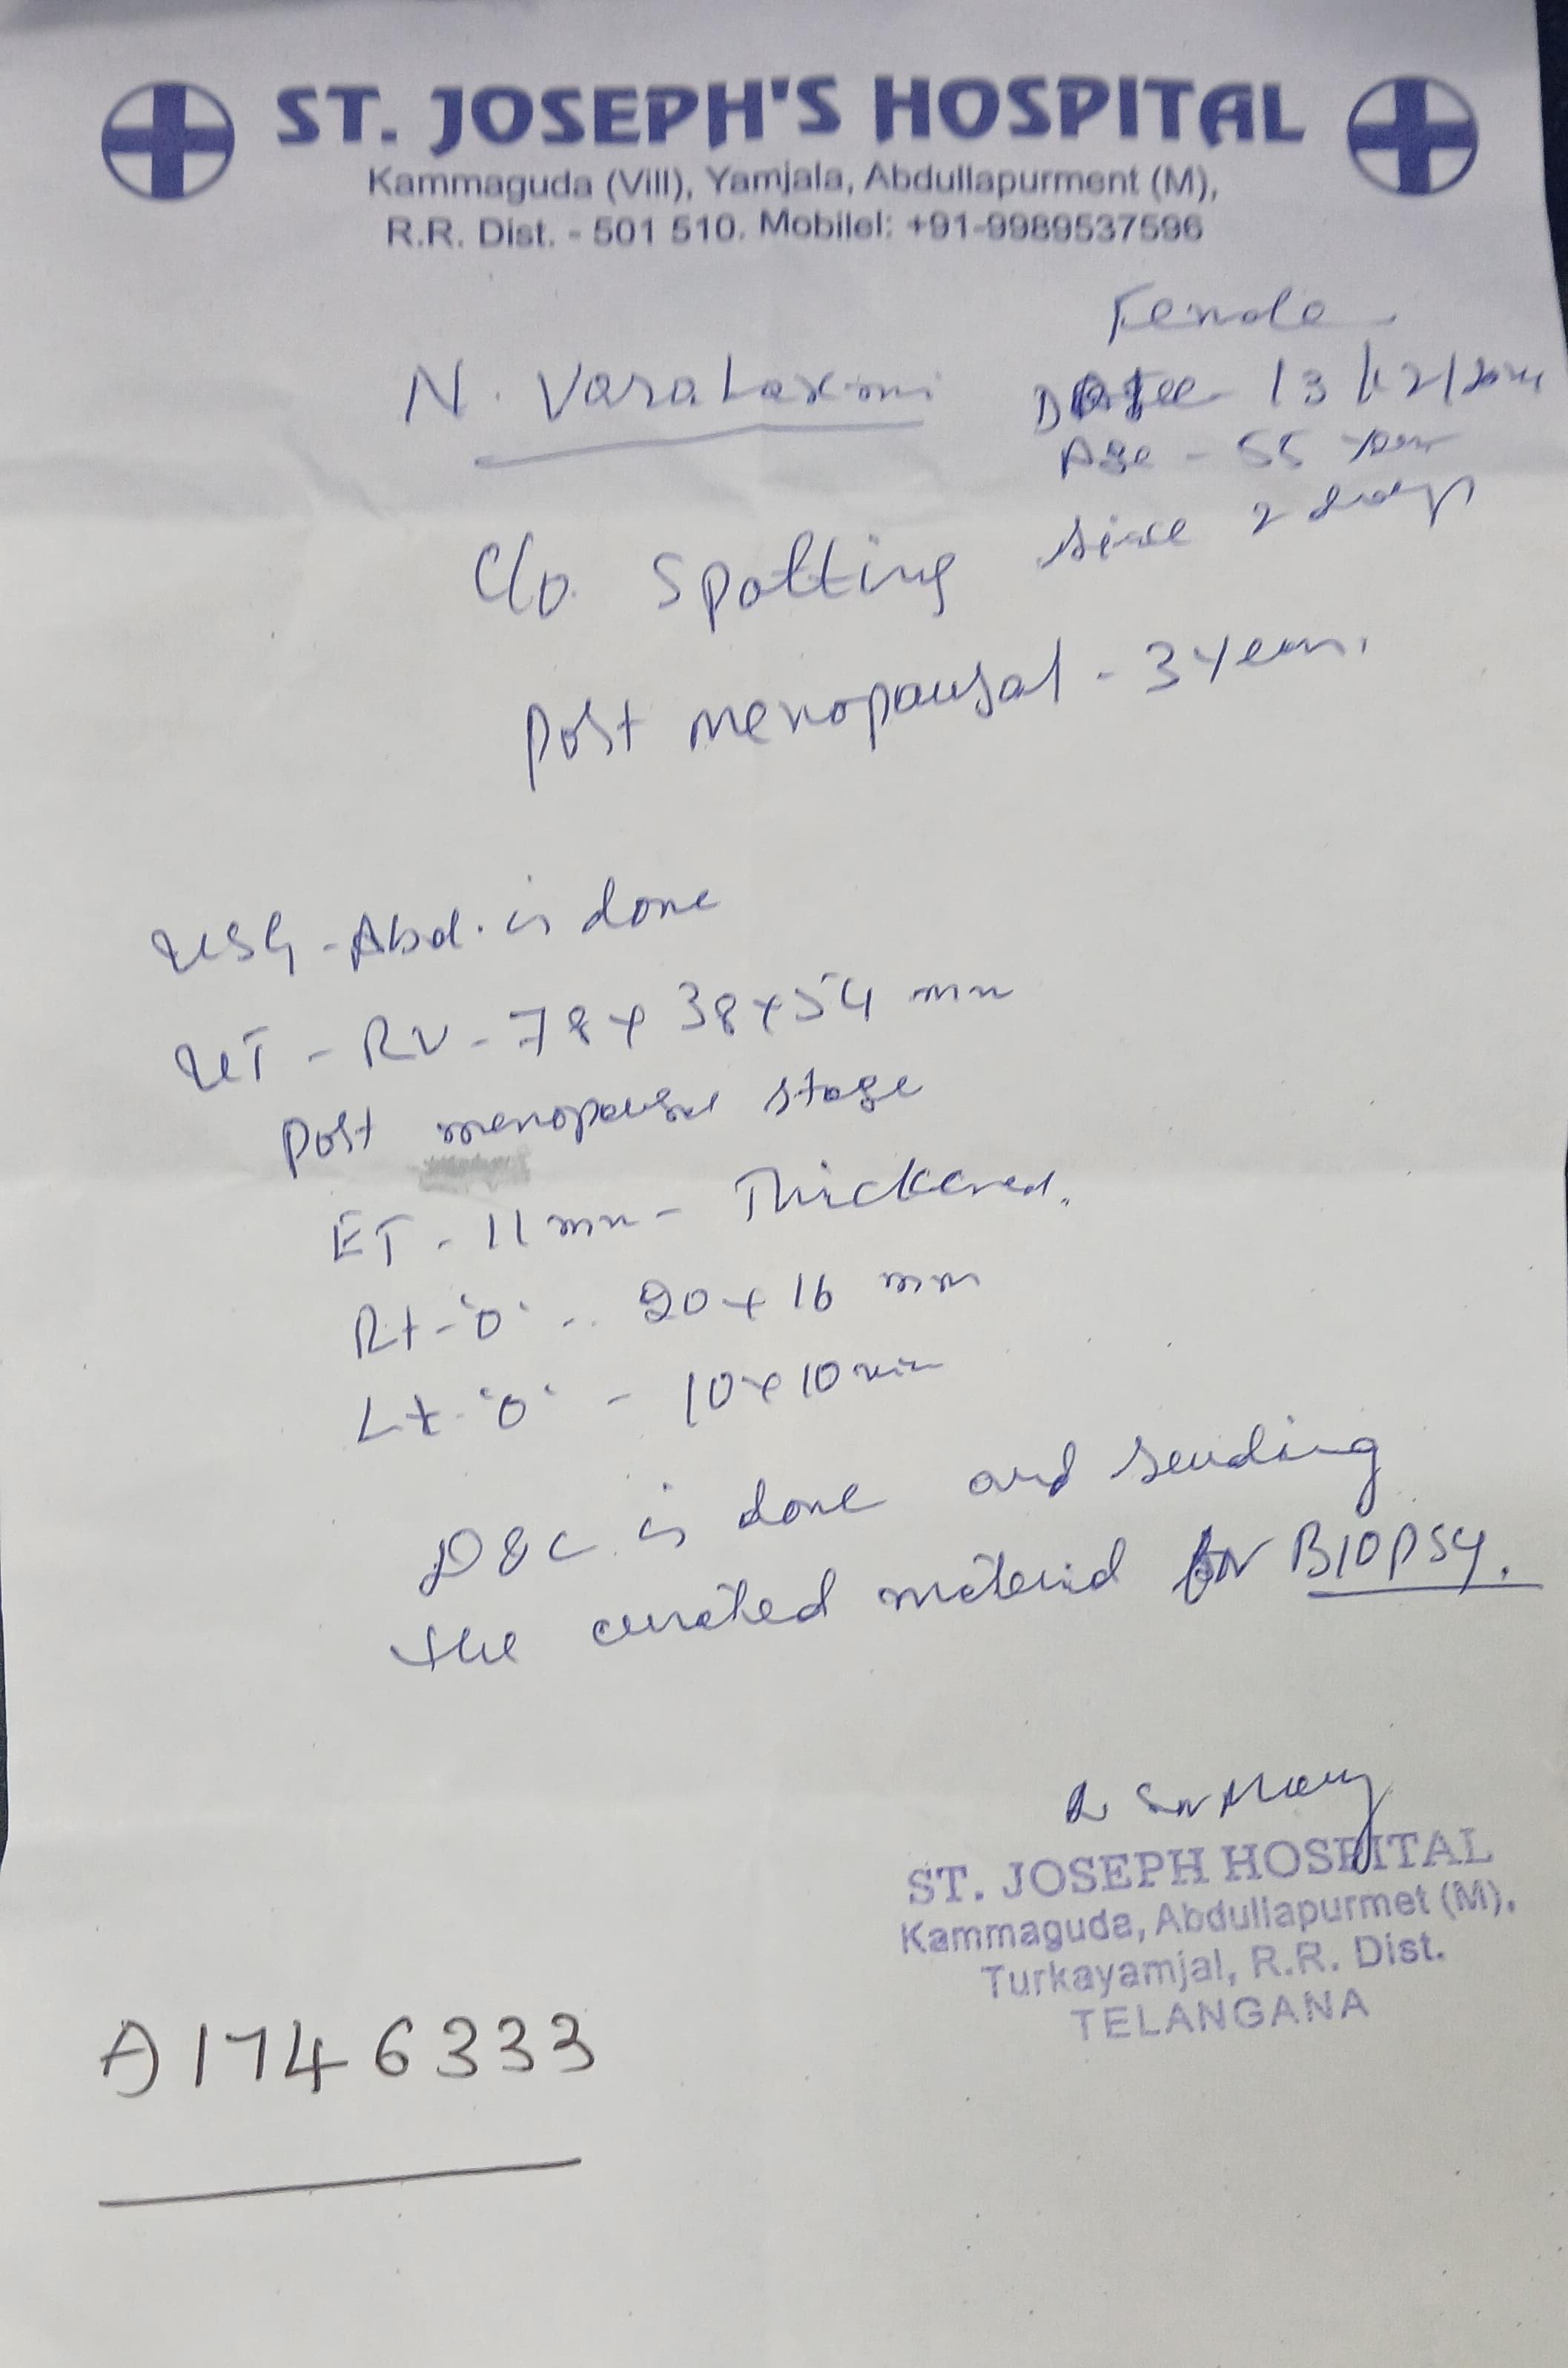 ST. JOSEPH'S HOSPITAL
Kammaguda (Vill), Yamjala, Abdullapurment (M),
R.R. Dist. - 501 510. Mobilel: +91-9989537596
Female
N. Varalaxmi
Date - 13/12/2024
Age - 55 year
C/o. Spotting since 2 days
Post menopausal - 3 years.
USG - Abd. is done
UT - RV - 78 x 38 x 54 mm
Post menopausal stage
ET - 11 mm - Thickened.
Rt - 'O' - 20 x 16 mm
Lt - 'O' - 10 x 10 mm
D&C is done and sending
the cureted material for BIOPSY.
ST. JOSEPH HOSPITAL
Kammaguda, Abdullapurmet (M),
Turkayamjal, R.R. Dist.
TELANGANA
A1746333